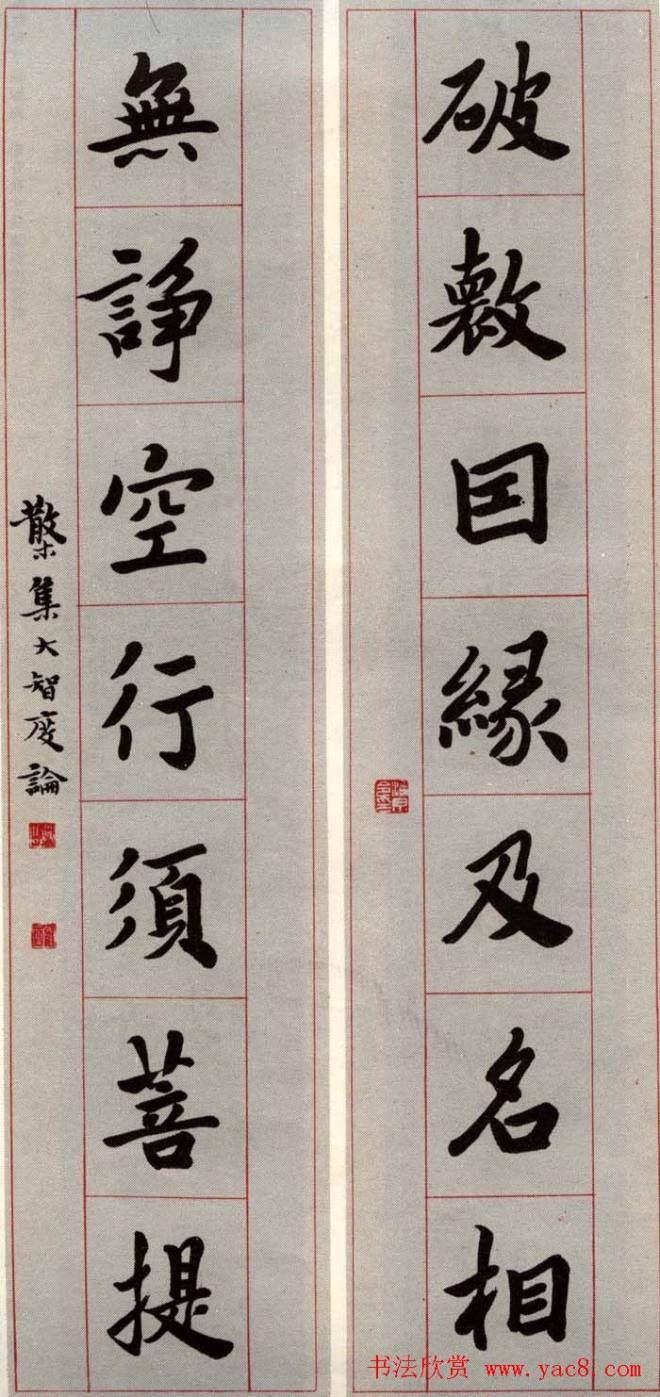 破壞因緣及名相
無諍空行須菩提
散木集大智度論
书法欣赏 www.yac8.com